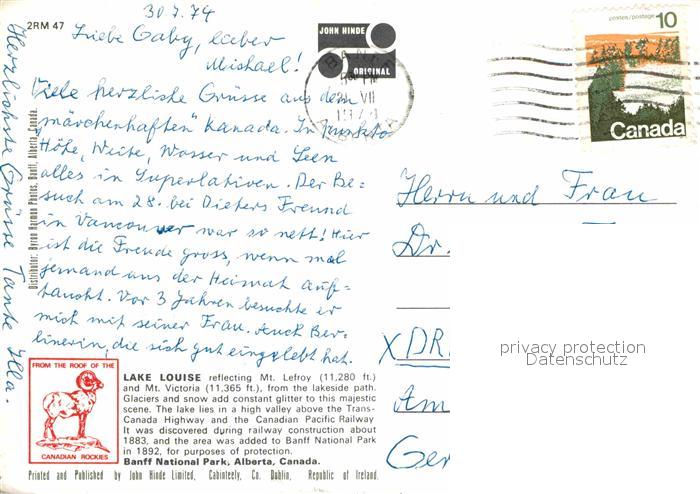 30.7.74
2RM 47
Liebe Gaby, lieber
Michael!
Viele herzliche Grüsse aus dem
"märchenhaften" Kanada. In punkto
Höhe, Weite, Wasser und Seen
alles in Superlativen. Der Be=
such am 28. bei Dieters Freund
in Vancouver war so nett! Hier
ist die Freude gross, wenn mal
jemand aus der Heimat auf-
taucht. Vor 3 Jahren besuchte er
mich mit seiner Frau. Auch Ber-
linerin, die sich gut eingelebt hat.
Herzlichste Grüsse Tante Illa.
Distributor: Byron Harmon Photos, Banff, Alberta, Canada.
JOHN HINDE
ORIGINAL
VII
postes/postage 10
Canada
Herrn und Frau
Dr.
X DR
Am
Ger
privacy protection
Datenschutz
FROM THE ROOF OF THE
CANADIAN ROCKIES
LAKE LOUISE reflecting Mt. Lefroy (11,280 ft.)
and Mt. Victoria (11,365 ft.), from the lakeside path.
Glaciers and snow add constant glitter to this majestic
scene. The lake lies in a high valley above the Trans-
Canada Highway and the Canadian Pacific Railway
It was discovered during railway construction about
1883, and the area was added to Banff National Park
in 1892, for purposes of protection.
Banff National Park, Alberta, Canada.
Printed and Published by John Hinde Limited, Cabinteely, Co. Dublin, Republic of Ireland.